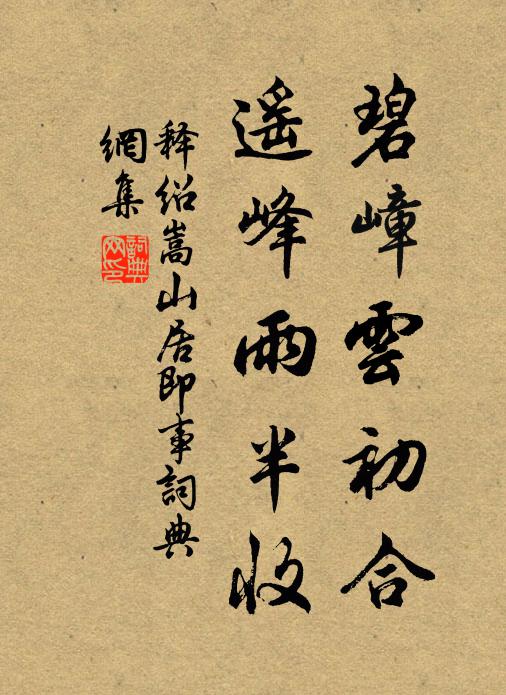 碧嶂雲初合
遥峰雨半收
释绍嵩山居即事詞典
網集
詞典
网印